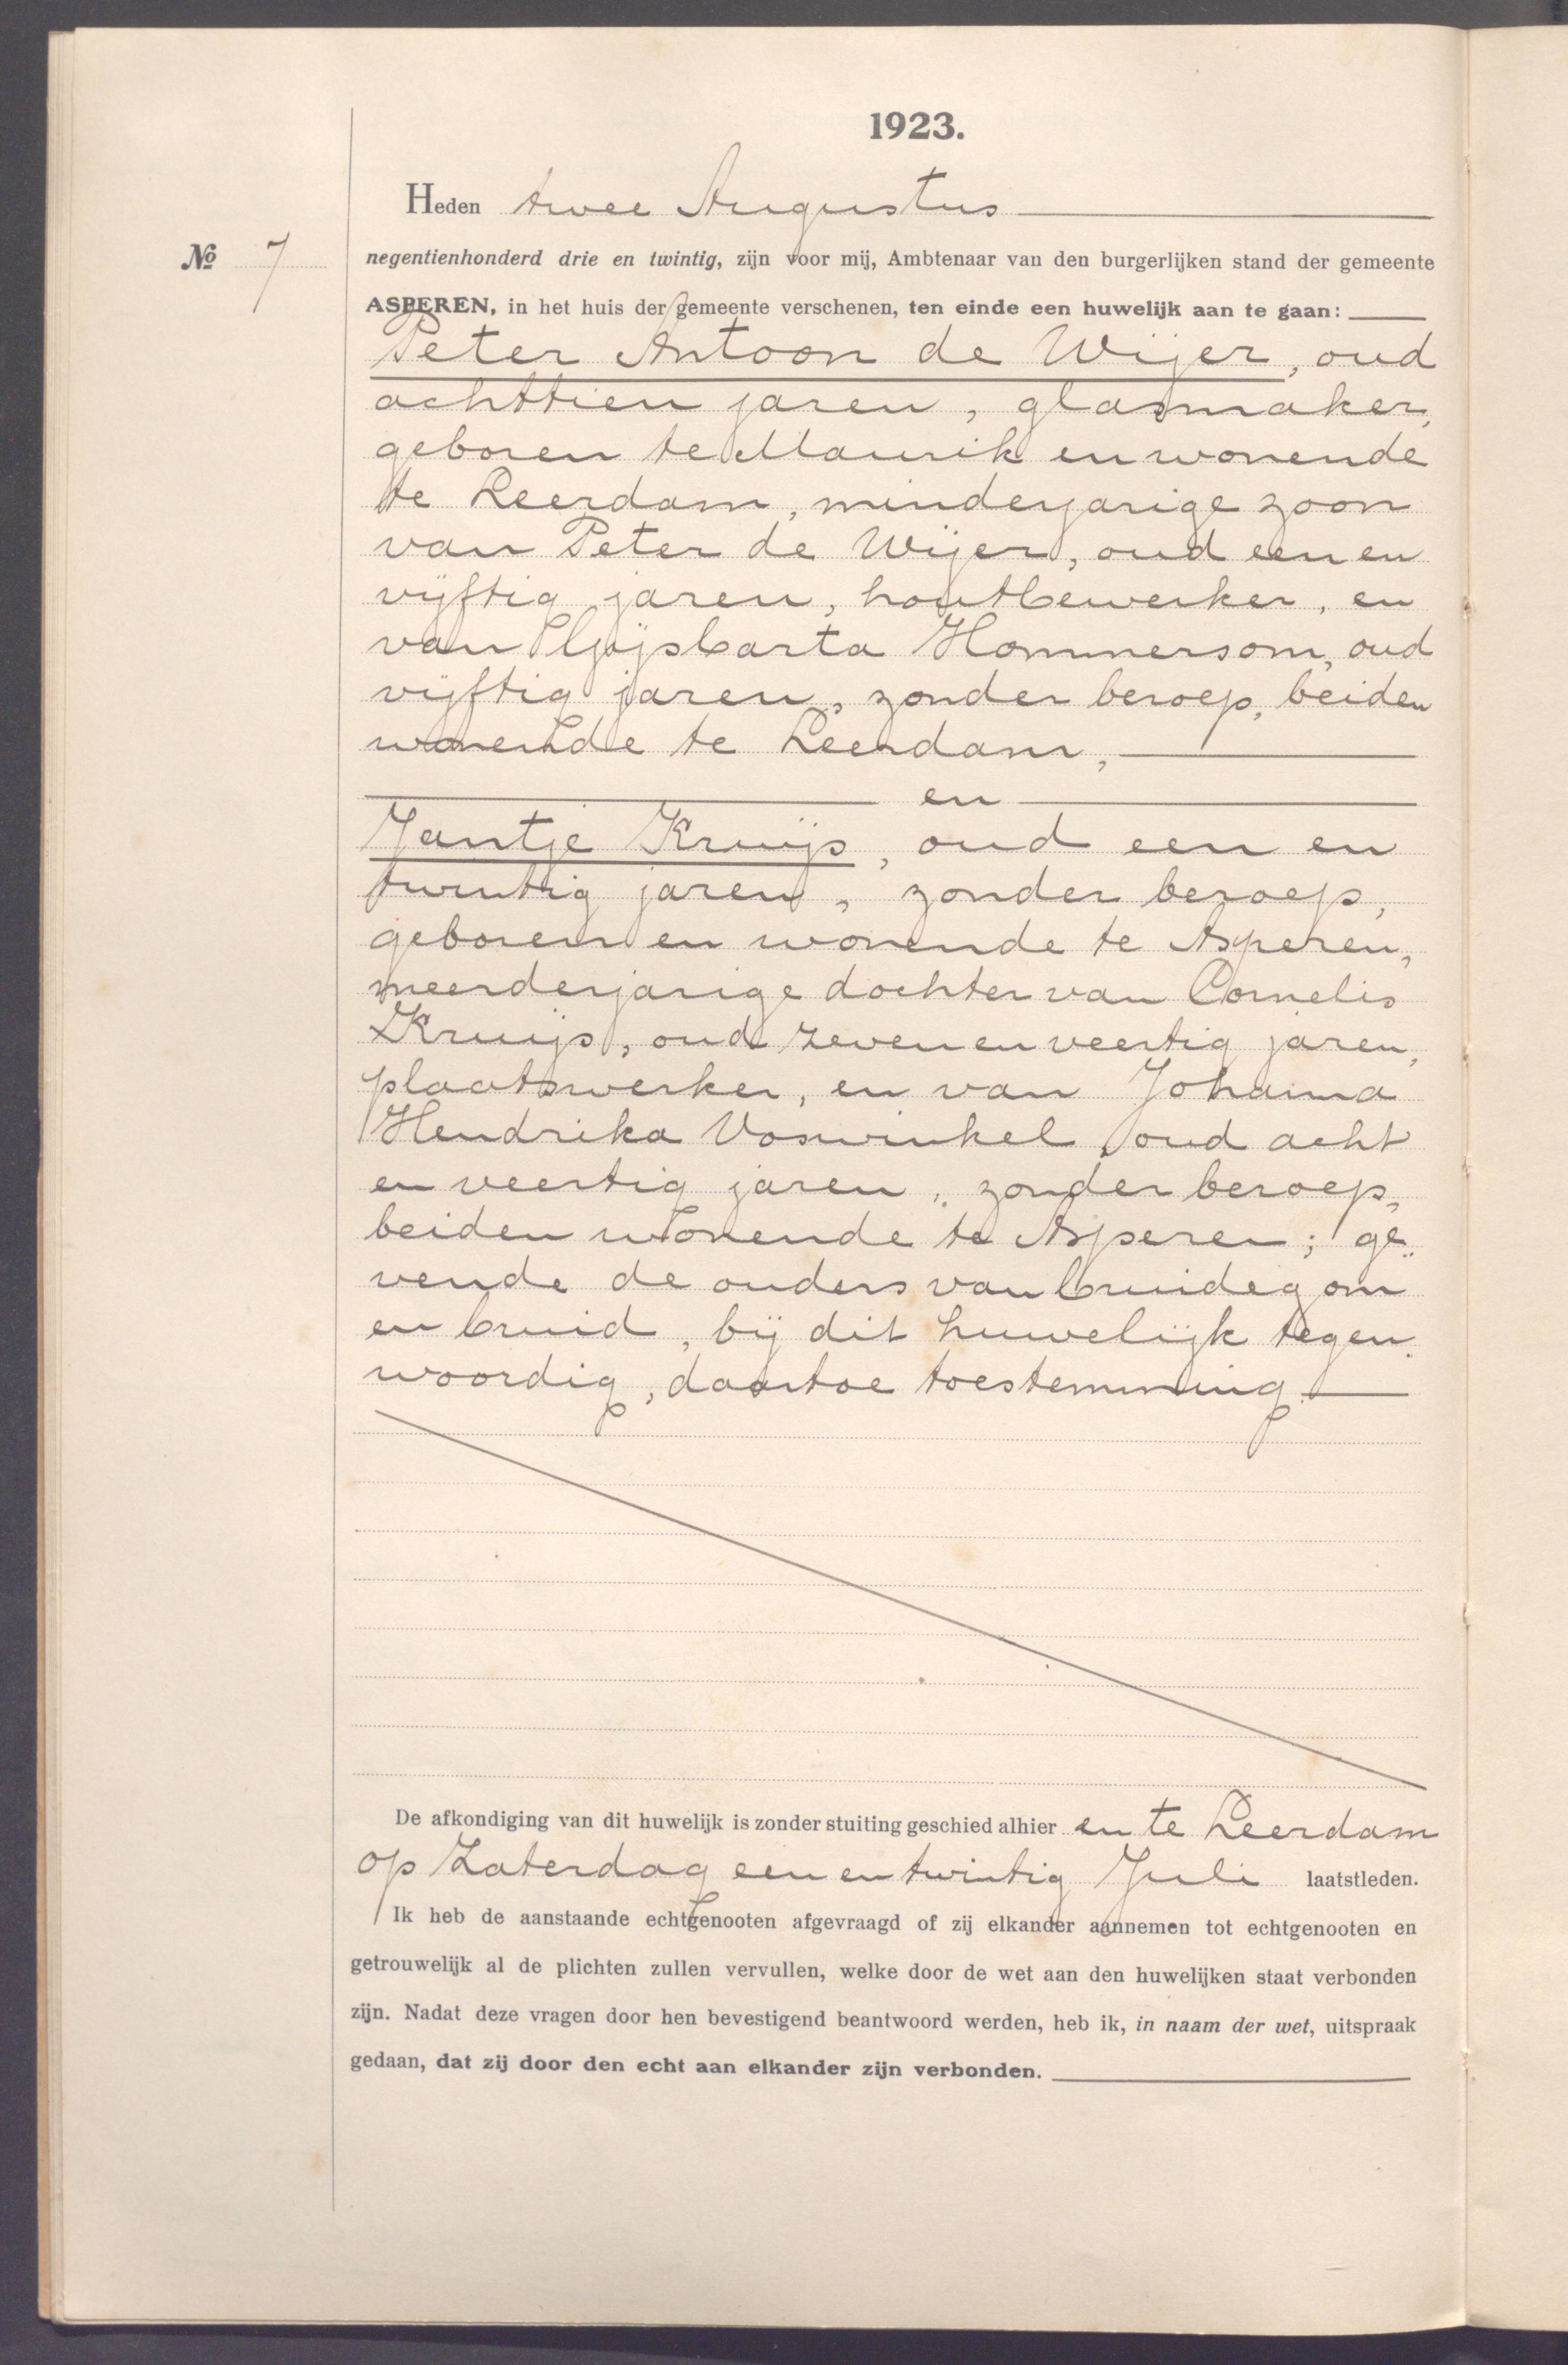 1923.
Heden twee Augustus
No 7
negentienhonderd drie en twintig, zijn voor mij, Ambtenaar van den burgerlijken stand der gemeente
ASPEREN, in het huis der gemeente verschenen, ten einde een huwelijk aan te gaan:
Peter Antoon de Wijer, oud
achttien jaren, glasmaker,
geboren te Maurik en wonende
te Leerdam, minderjarige zoon
van Peter de Wijer, oud een en
vijftig jaren, houtbewerker, en
van Gijsbarta Hommersom, oud
vijftig jaren, zonder beroep, beiden
wonende te Leerdam,
en
Jantje Kruijs, oud een en
twintig jaren, zonder beroep,
geboren en wonende te Asperen,
meerderjarige dochter van Cornelis
Kruijs, oud zeven en veertig jaren,
plaatswerker, en van Johanna
Hendrika Voswinkel, oud acht
en veertig jaren, zonder beroep,
beiden wonende te Asperen; ge„
vende de ouders van bruidegom
en bruid, bij dit huwelijk tegen„
woordig, daartoe toestemming.
De afkondiging van dit huwelijk is zonder stuiting geschied alhier en te Leerdam
op Zaterdag een en twintig Juli laatstleden.
Ik heb de aanstaande echtgenooten afgevraagd of zij elkander aannemen tot echtgenooten en
getrouwelijk al de plichten zullen vervullen, welke door de wet aan den huwelijken staat verbonden
zijn. Nadat deze vragen door hen bevestigend beantwoord werden, heb ik, in naam der wet, uitspraak
gedaan, dat zij door den echt aan elkander zijn verbonden.